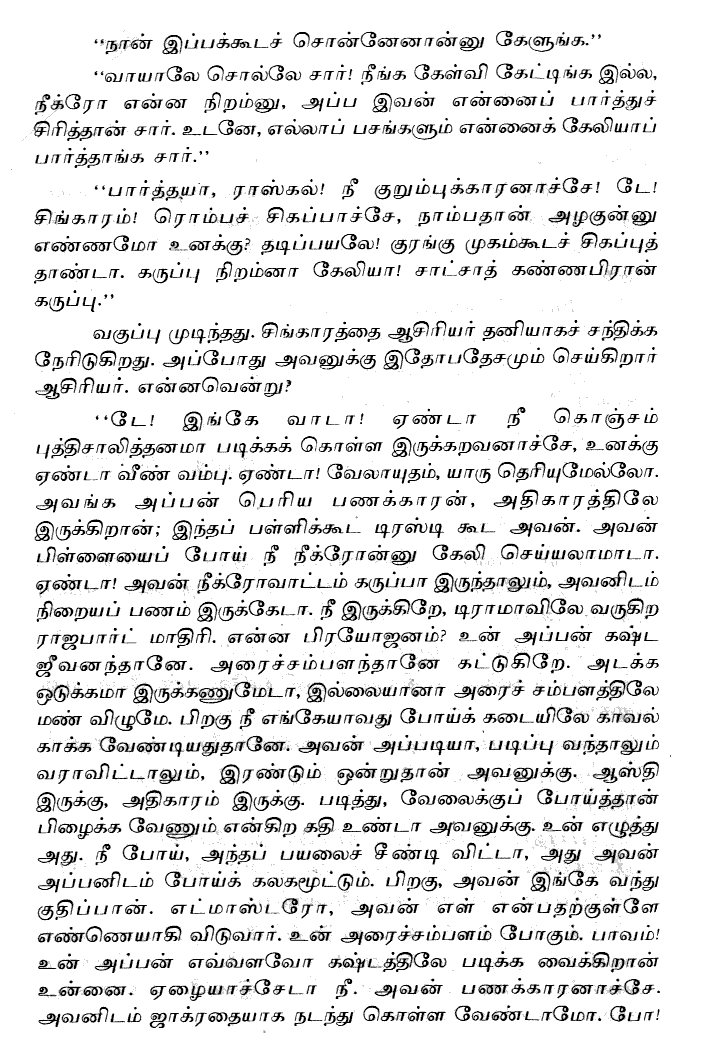 ‘‘நான் இப்பக்கூடச் சொன்னேனான்னு கேளுங்க.’’
‘‘வாயாலே சொல்லே சார்! நீங்க கேள்வி கேட்டிங்க இல்ல,
நீக்ரோ என்ன நிறம்னு, அப்ப இவன் என்னைப் பார்த்துச்
சிரித்தான் சார். உடனே, எல்லாப் பசங்களும் என்னைக் கேலியாப்
பார்த்தாங்க சார்.’’
‘‘பார்த்தயா, ராஸ்கல்! நீ குறும்புக்காரனாச்சே! டே!
சிங்காரம்! ரொம்பச் சிகப்பாச்சே, நாம்பதான் அழகுன்னு
எண்ணமோ உனக்கு? தடிப்பயலே! குரங்கு முகம்கூடச் சிகப்புத்
தாண்டா. கருப்பு நிறம்னா கேலியா! சாட்சாத் கண்ணபிரான்
கருப்பு.’’
வகுப்பு முடிந்தது. சிங்காரத்தை ஆசிரியர் தனியாகச் சந்திக்க
நேரிடுகிறது. அப்போது அவனுக்கு இதோபதேசமும் செய்கிறார்
ஆசிரியர். என்னவென்று?
‘‘டே! இங்கே வாடா! ஏண்டா நீ கொஞ்சம்
புத்திசாலித்தனமா படிக்கக் கொள்ள இருக்கறவனாச்சே, உனக்கு
ஏண்டா வீண் வம்பு. ஏண்டா! வேலாயுதம், யாரு தெரியுமேல்லோ.
அவங்க அப்பன் பெரிய பணக்காரன், அதிகாரத்திலே
இருக்கிறான்; இந்தப் பள்ளிக்கூட டிரஸ்டி கூட அவன். அவன்
பிள்ளையைப் போய் நீ நீக்ரோன்னு கேலி செய்யலாமாடா.
ஏண்டா! அவன் நீக்ரோவாட்டம் கருப்பா இருந்தாலும், அவனிடம்
நிறையப் பணம் இருக்கேடா. நீ இருக்கிறே, டிராமாவிலே வருகிற
ராஜபார்ட் மாதிரி. என்ன பிரயோஜனம்? உன் அப்பன் கஷ்ட
ஜீவனந்தானே. அரைச்சம்பளந்தானே கட்டுகிறே. அடக்க
ஒடுக்கமா இருக்கணுமேடா, இல்லையானா அரைச் சம்பளத்திலே
மண் விழுமே. பிறகு நீ எங்கேயாவது போய்க் கடையிலே காவல்
காக்க வேண்டியதுதானே. அவன் அப்படியா, படிப்பு வந்தாலும்
வராவிட்டாலும், இரண்டும் ஒன்றுதான் அவனுக்கு. ஆஸ்தி
இருக்கு, அதிகாரம் இருக்கு. படித்து, வேலைக்குப் போய்த்தான்
பிழைக்க வேணும் என்கிற கதி உண்டா அவனுக்கு. உன் எழுத்து
அது. நீ போய், அந்தப் பயலைச் சீண்டி விட்டா, அது அவன்
அப்பனிடம் போய்க் கலகமூட்டும். பிறகு, அவன் இங்கே வந்து
குதிப்பான். எட்மாஸ்டரோ, அவன் எள் என்பதற்குள்ளே
எண்ணெயாகி விடுவார். உன் அரைச்சம்பளம் போகும். பாவம்!
உன் அப்பன் எவ்வளவோ கஷ்டத்திலே படிக்க வைக்கிறான்
உன்னை. ஏழையாச்சேடா நீ. அவன் பணக்காரனாச்சே.
அவனிடம் ஜாக்ரதையாக நடந்து கொள்ள வேண்டாமோ. போ!